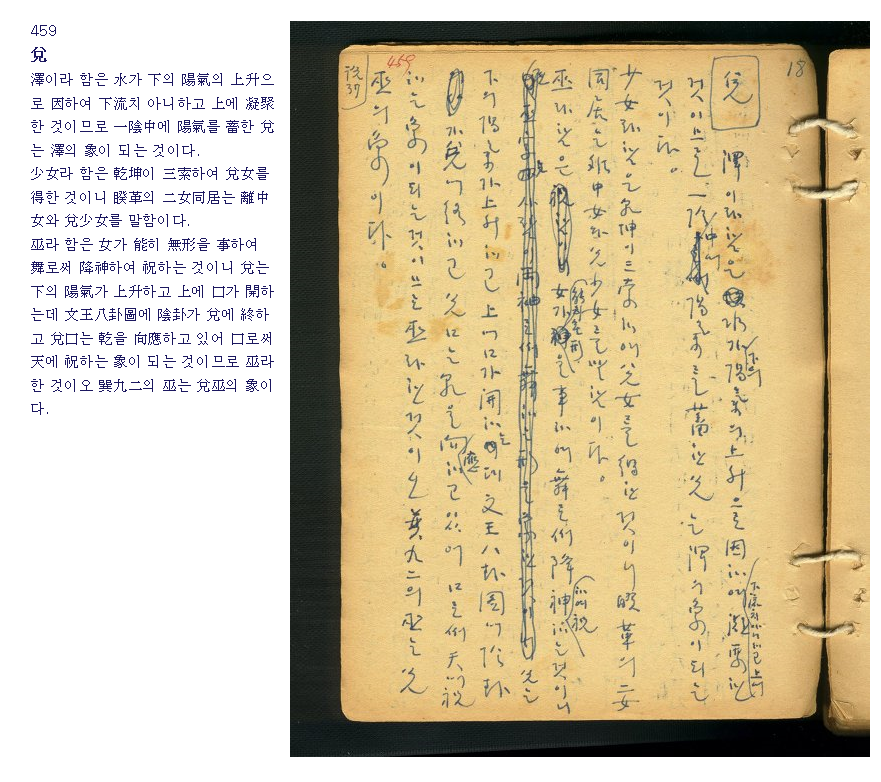 459
兌
澤이라 함은 水가 下의 陽氣의 上升으
로 因하여 下流치 아니하고 上에 凝聚
한 것이므로 一陰中에 陽氣를 蓄한 兌
는 澤의 象이 되는 것이다.
少女라 함은 乾坤이 三索하여 兌女를
得한 것이니 睽革의 二女同居는 離中
女와 兌少女를 말함이다.
巫라 함은 女가 能히 無形을 事하여
舞로써 降神하여 祝하는 것이니 兌는
下의 陽氣가 上升하고 上에 口가 開하
는데 文王八卦圖에 陰卦가 兌에 終하
고 兌口는 乾을 向應하고 있어 口로써
天에 祝하는 象이 되는 것이므로 巫라
한 것이오 巽九二의 巫는 兌巫의 象이
다.
18
兌
澤이라 함은 水가 下의 陽氣의 上升으로 因하여 下流치 아니하고 上에 凝聚한
것이므로 一陰中에 陽氣를 蓄한 兌는 澤의 象이 되는
것이다.
少女라 함은 乾坤이 三索하여 兌女를 得한 것이니 睽革의 二女
同居는 離中女와 兌少女를 말함이다.
巫라 함은 女가 能히 無形을 事하여 舞로써 降神하여 祝하는 것이니
兌는
下의 陽氣가 上升하고 上에 口가 開하는데 文王八卦圖에 陰卦
가 兌에 終하고 兌口는 乾을 向應하고 있어 口로써 天에 祝
하는 象이 되는 것이므로 巫라 한 것이오 巽九二의 巫는 兌
巫의 象이다.
459
說37